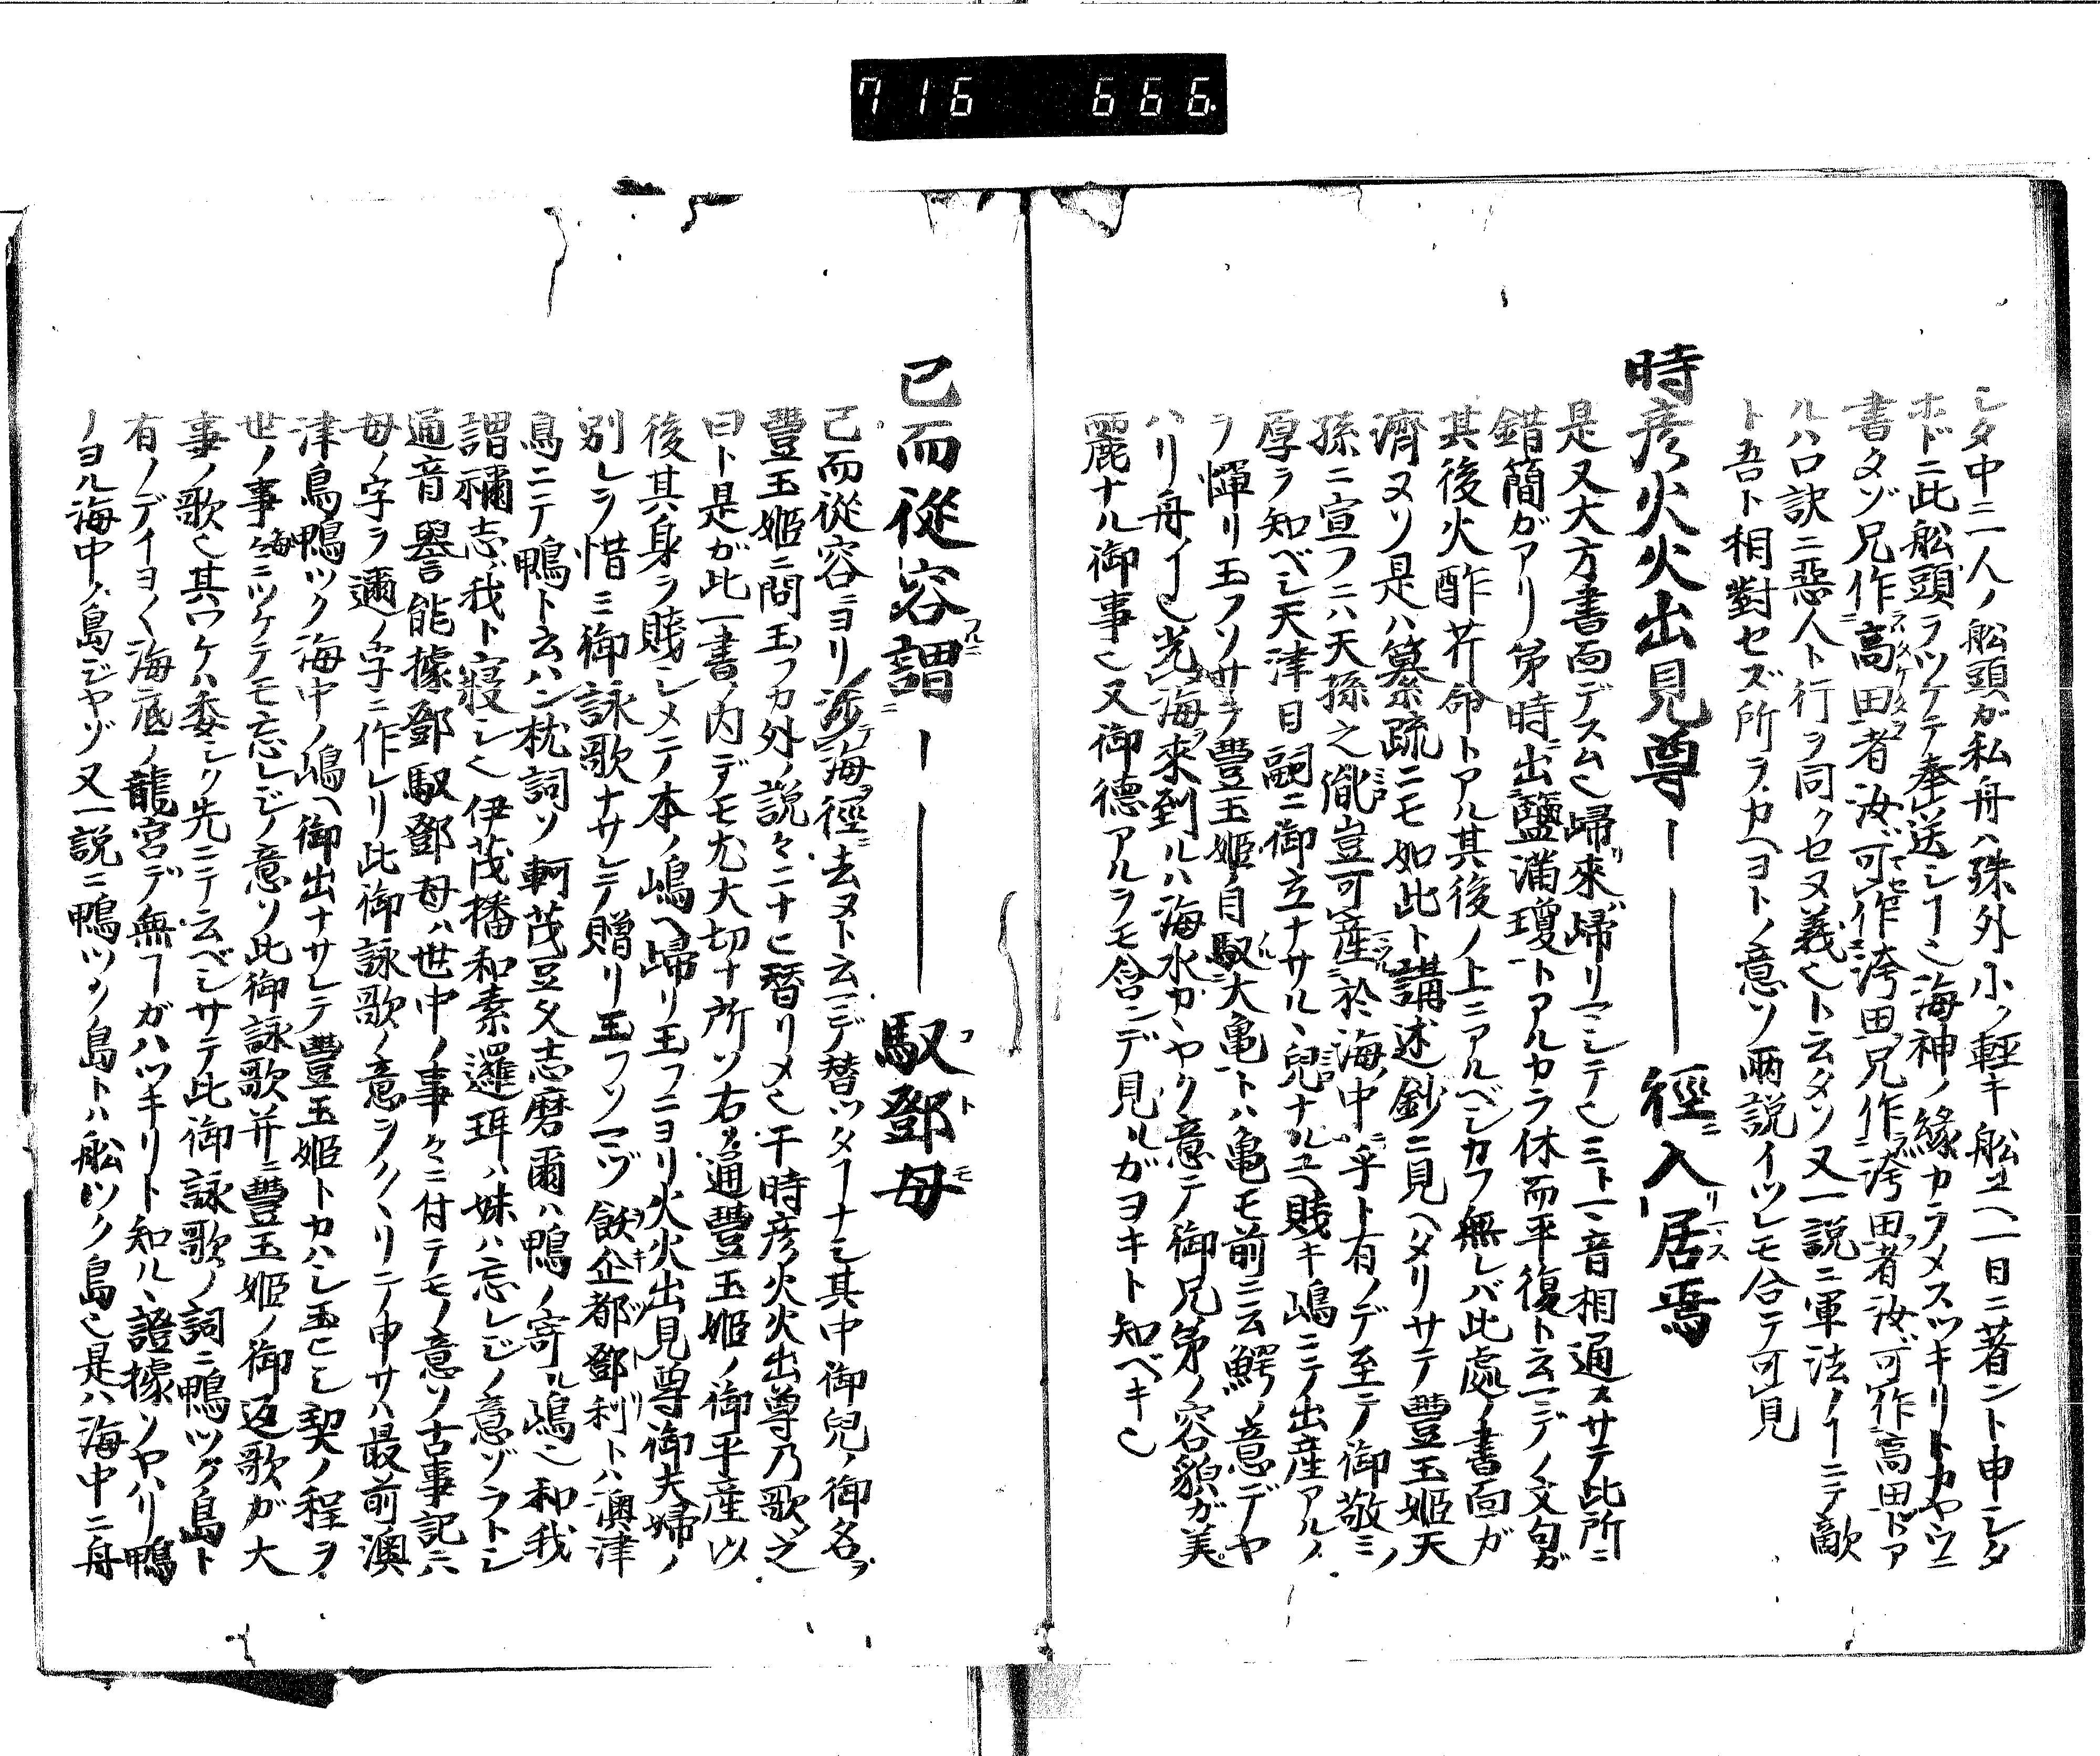 716 666
シタ中ニ一人ノ舩頭ガ私舟ハ殊外小ク軽キ舩ユヘ一日ニ著ント申シタ
ホドニ此舩頭ヲツケテ奉送シ海神ノ縁カラメスツキリトカヤウニ
書タゾ兄作高田者汝可作洿田兄作洿田者汝可作高田ドア
ルハ口訣ニ惡人ト行ヲ同クセヌ義ト云タソ又一説ニ軍法ノニテ敵
ト吾ト相對セズ所ヲカヘヨトノ意ソ兩説イツレモ合テ可見
時彦火火出見尊ー――徑ニ入リ居マス焉
是又大方書面デスム歸來歸リマシテ也ミト一音相通スサテ此所ニ
錯簡ガアリ第時出鹽滿瓊トアルカラ休而平復ト云デノ文句ガ
其後火酢芹命トアル其後ノ上ニアルベシカフ無レバ此處ノ書面ガ
濟ヌソ是ハ纂疏ニモ如此ト講述鈔ニ見ヘタリサテ豐玉姫天
孫ニ宣フニハ天孫之胤豈可産於海中乎ト有ノデ至テ御敬ミノ
厚ヲ知ベシ天津日嗣ニ御立ナサルヽ兒ナルユヘ賤キ嶋ニテノ出産アルノ
ヲ憚リ玉フソサテ豐玉姫自馭大亀トハ亀モ前ニ云鰐ノ意デヤ
ハリ舟也光海來到ルハ海水カヽヤク意テ御兄弟ノ容貌ガ美
麗ナル御事也又御德アルヲモ含ンデ見ルガヨキト知ベキ也
已而從容謂ー――馭鄧母
已而從容ニヨリ涉海徑去ヌト云デ替ツタナシ其中御兒ノ御名ヲ
豐玉姫ニ問玉フカ外ノ説々ニナヒ替リメ也于時彦火火出尊乃歌之
曰ト是ガ此一書ノ内デモ尤大切ナ所ソ右ノ通豐玉姫ノ御平産以
後其身ヲ賤シメテ本ノ嶋ヘ歸リ玉フニヨリ火火出見尊御夫婦ノ
別レヲ惜ミ御詠歌ナサレテ贈リ玉フソマヅ飫企都鄧利トハ澳津
鳥ニテ鴨ト云ハン枕詞ソ軻茂豆勾志磨爾ハ鴨ノ寄ル嶋也和我
謂禰志我ト寢シ也伊茂播和素邏珥ハ妹ハ忘レジノ意ゾラトシ
通音譽能據鄧馭鄧母ハ世中ノ事々ニ付テモノ意ソ古事記ニハ
母ノ字ヲ邇ノ字ニ作レリ此御詠歌ノ意ヲクヽリテ申サハ最前澳
津鳥鴨ツク海中ノ嶋ヘ御出ナサレテ豐玉姫トカハシ玉ヒシ契ノ程ヲ
世ノ事毎ニツケテモ忘レジノ意ソ此御詠歌并ニ豐玉姫ノ御返歌ガ大
事ノ歌也其ワケハ委シク先ニテ云ベシサテ此御詠歌ノ詞ニ鴨ツク島ト
有ノデイヨく海底ノ龍宮デ無ーガハツキリト知ルヽ證據ソヤハリ鴨
ノヨル海中ノ島ジヤゾ又一説ニ鴨ツクノ島トハ舩ツク島也是ハ海中ニ舟